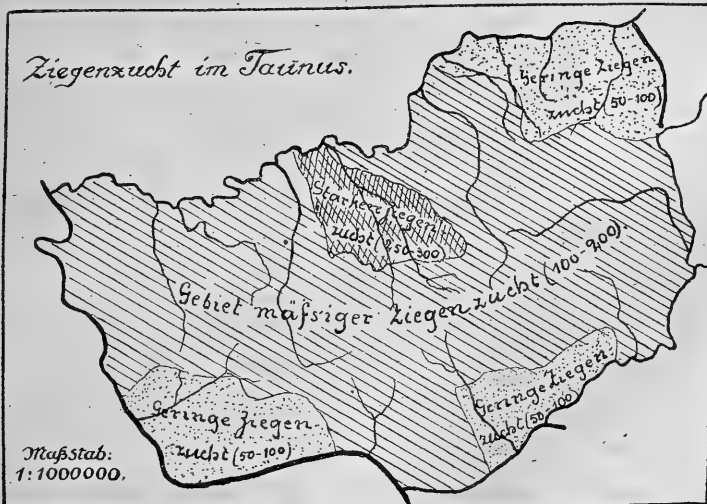 Ziegenzucht im Taunus.
Geringe Ziegen
zucht (50-100)
Stärkere Ziegen
zucht (250-300)
Gebiet mäßiger Ziegenzucht (100-200).
Geringe Ziegen
zucht (50-100)
Geringe Ziegen-
zucht (50-100)
Maßstab:
1:1000000.